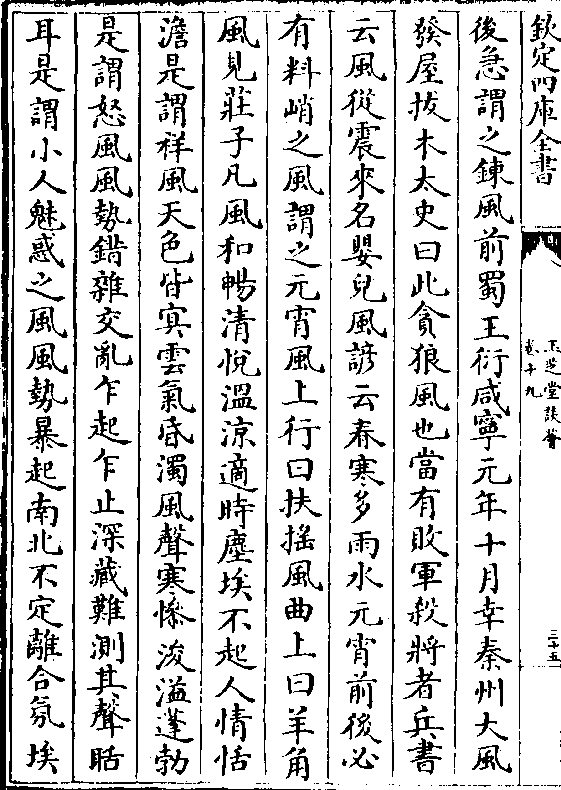 欽定四庫全書
玉芝堂談薈
卷十九
三十五
後急謂之鍊風前蜀王衍咸寧元年十月幸秦州大風
發屋拔木太史曰此貪狼風也當有敗軍殺將者兵書
云風從震來名嬰兒風諺云春寒多雨水元宵前後必
有料峭之風謂之元宵風上行曰扶摇風曲上曰羊角
風見莊子凡風和暢清悦溫涼適時塵埃不起人情恬
澹是謂祥風天色皆㝠雲氣昏濁風聲寒慘浚溢蓬勃
是謂怒風風勢錯雜交亂乍起乍止深藏難測其聲聒
耳是謂小人魅惑之風風勢暴起南北不定離合氛埃